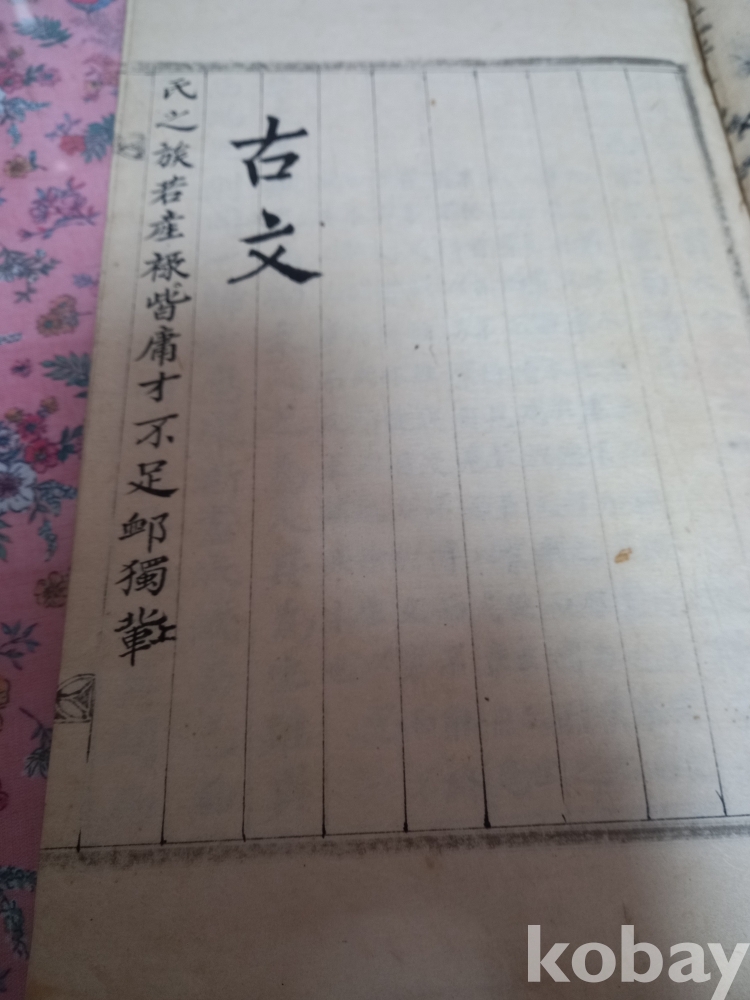 古文
氏之族若産祿皆庸才不足卹獨軰
kobay